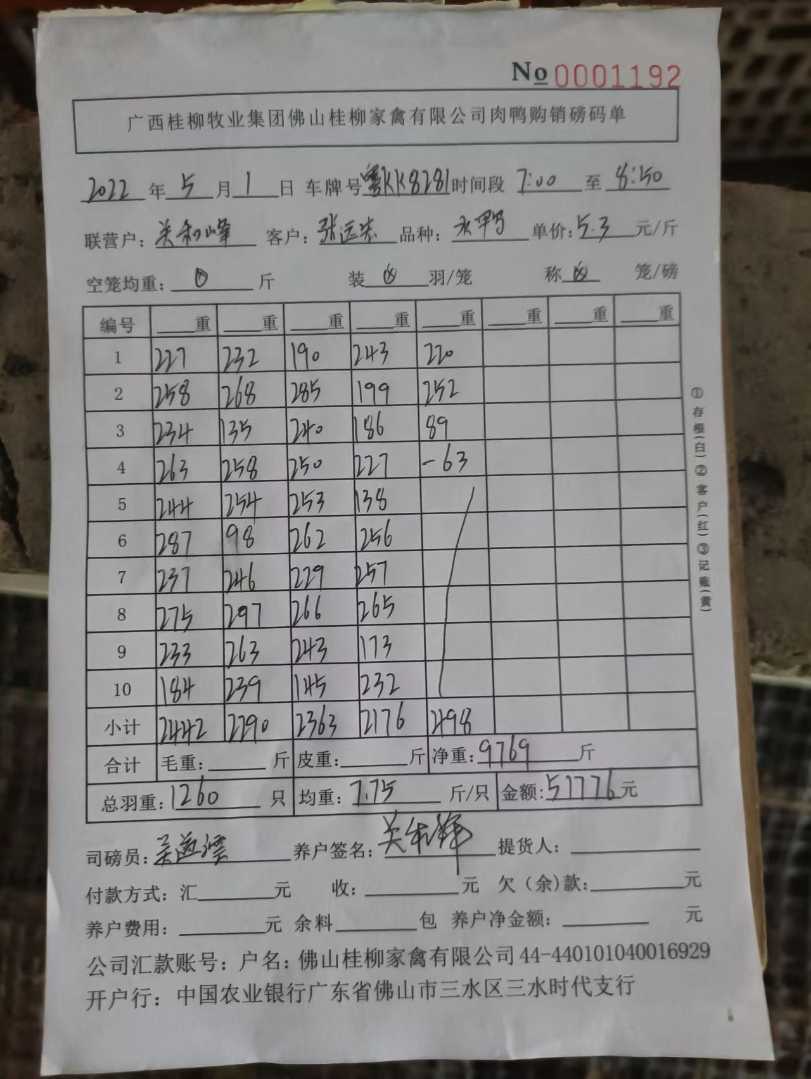 No 0001192
广西桂柳牧业集团佛山桂柳家禽有限公司肉鸭购销磅码单
2022 年 5 月 1 日 车牌号 粤KK8281 时间段 7:00 至 8:50
联营户： 关和峰 客户： 张运 品种： 水鸭 单价： 5.3 元/斤
空笼均重： 0 斤 装 羽/笼 称 笼/磅
编号 重 重 重 重 重 重 重 重
1 227 232 190 243 220
2 258 268 285 199 252
3 234 135 240 186 89
4 263 258 250 227 -63
5 244 254 253 138
6 287 98 262 256
7 237 246 229 257
8 275 297 266 265
9 233 263 243 173
10 184 239 145 232
小计 2442 2290 2363 2176 498
合计 毛重： 斤 皮重： 斤 净重： 9769 斤
总羽重： 1260 只 均重： 7.75 斤/只 金额： 51776 元
司磅员： 养户签名： 提货人：
付款方式：汇 元 收： 元 欠（余)款： 元
养户费用： 元 余料 包 养户净金额： 元
公司汇款账号：户名：佛山桂柳家禽有限公司 44-440101040016929
开户行：中国农业银行广东省佛山市三水区三水时代支行
①存根(白)②客户(红)③记账(黄)